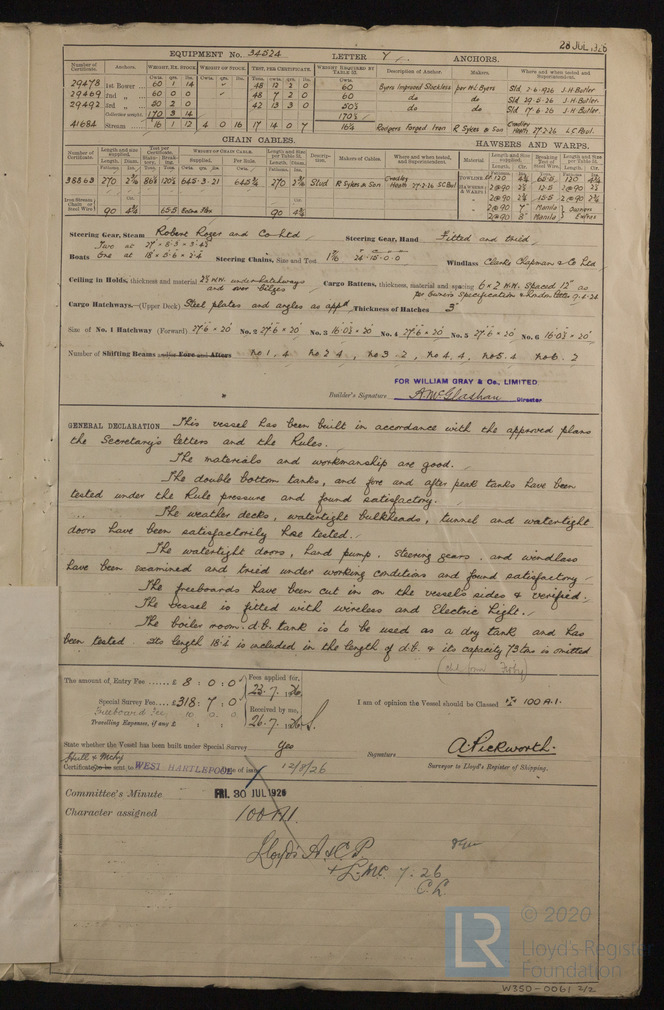 28 JUL 1926
EQUIPMENT No. 34524 LETTER Y ANCHORS.
Number of Certificate. Anchors. WEIGHT, EX. STOCK. WEIGHT OF STOCK. TEST, PER CERTIFICATE. WEIGHT REQUIRED BY TABLE 53. Description of Anchor. Makers. Where and when tested and Superintendent.
29478 1st Bower 60 1 14 48 12 2 0 60 Byers Improved Stockless per W.L. Byers Sld 2.6.926 J.H. Butler.
29469 2nd „ 60 0 0 48 7 2 0 60 do do Sld 29.5.26 J.H. Butler.
29492 3rd „ 50 2 0 42 13 3 0 50½ do do Sld 17.6.26 J.H. Butler
Collective weight 170 3 14 170½
41684 Stream 16 1 12 4 0 16 17 14 0 7 16¼ Rodgers Forged Iron R Sykes & Son Cradley Heath 27.2.26 L.C. Paul.
CHAIN CABLES. HAWSERS AND WARPS.
Number of Certificate. Length and size supplied. Test per Certificate. WEIGHT OF CHAIN CABLE. Length and size per Table 53. Description. Makers of Cables. Where and when tested, and Superintendent. Material. Length and Size supplied. Breaking Test of Steel Wire. Length and Size per Table 53.
270 645.3.21 270 Stud R Sykes & Son Cradley Heath 27.2.26
Iron Stream Chain or Steel Wire 90 90
TOWLINE 120 120
HAWSERS & WARPS 2@90
2@90
2@90 7" Manila Owners
2@90 8" Manila Extras
Steering Gear, Steam Robert Roger and Co Ltd Steering Gear, Hand Fitted and tried
Boats Two at 27 × 8.3 × 3.4½
One at 18 × 5.6 × 2.4 Steering Chains, Size and Test 1 7/16 24-15-0-0 Windlass Clarke Chapman & Co Ltd
Ceiling in Holds, thickness and material 2½ W.W. under hatchways and over bilges Cargo Battens, thickness, material and spacing 6 × 2 W.W. Spaced 12" as per Owners Specification & London letter
Cargo Hatchways.—(Upper Deck) Steel plates and angles as appd Thickness of Hatches 3"
Size of No. 1 Hatchway (Forward) 27'6 × 20' No. 2 27'6 × 20' No. 3 16.0½ × 20' No. 4 27'6 × 20' No. 5 27'6 × 20' No. 6 16.0½ × 20'
Number of Shifting Beams and/or Fore and Afters No 1, 4 No 2 4, No 3 2, No 4, 4, No 5 4 No 6 2
FOR WILLIAM GRAY & Co., LIMITED
Builder's Signature R. McGlashan Director
GENERAL DECLARATION This vessel has been built in accordance with the approved plans
the Secretary's letters and the Rules.
The materials and workmanship are good.
The double bottom tanks, and fore and after peak tanks have been
tested under the Rule pressure and found satisfactory.
The weather decks, watertight bulkheads, tunnel and watertight
doors have been satisfactorily hose tested.
The watertight doors, hand pump, steering gears, and windlass
have been examined and tried under working conditions and found satisfactory
The freeboards have been cut in on the vessel's sides & verified.
The vessel is fitted with wireless and Electric light.
The boiler room d.b. tank is to be used as a dry tank and has
been tested. Its length 18.4 is included in the length of d.b. & its capacity 73 tons is omitted
The amount of Entry Fee ...... £ 8 : 0 : 0 Fees applied for, 23.7.1926
Special Survey Fee.... £318 : 7 : 0 I am of opinion the Vessel should be Classed 100 A.1.
Freeboard Fee 10. 0. 0 Received by me,
Travelling Expenses, if any £ 26.7.1926
State whether the Vessel has been built under Special Survey Yes
Signature A Pickworth.
Hull & Mchy
Certificate to be sent to WEST HARTLEPOOL Date of issue 12/8/26 Surveyor to Lloyd's Register of Shipping.
Committee's Minute FRI. 30 JUL 1926
Character assigned 100 A1.
Lloyd's A & C.P.
+ LMC. 7.26
C.L.
LR
© 2020
Lloyd's Register
Foundation
W350-0061 2/2